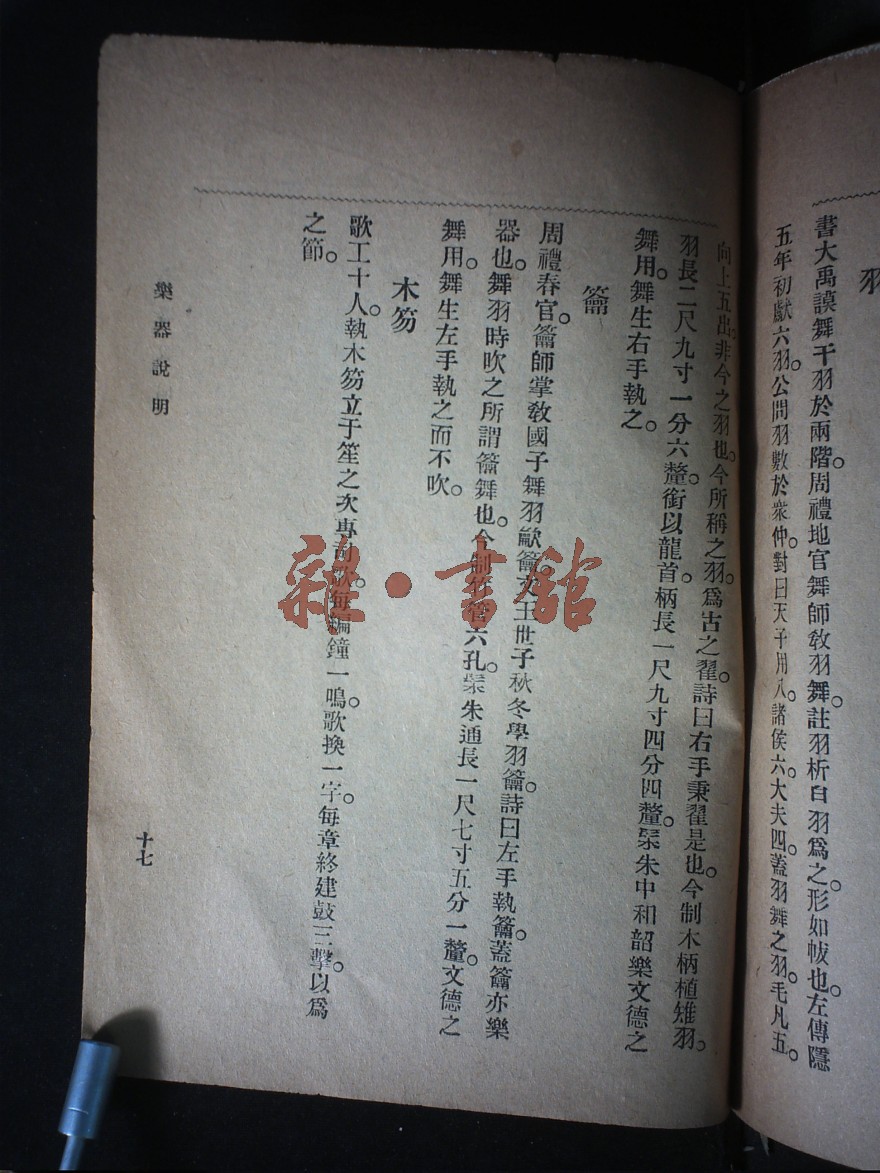 羽
書大禹謨舞干羽於兩階。周禮地官舞師敎羽舞。註羽析白羽爲之。形如帗也。左傳隱
五年初獻六羽。公問羽數於衆仲。對曰天子用八。諸侯六。大夫四。蓋羽舞之羽。毛凡五。
向上五出。非今之羽也。今所稱之羽。爲古之翟。詩曰右手秉翟是也。今制木柄植雉羽。
羽長二尺九寸一分六釐。銜以龍首。柄長一尺九寸四分四釐。髹朱中和韶樂文德之
舞用。舞生右手執之。
籥
周禮春官。籥師掌敎國子舞羽龡籥。文王世子秋冬學羽籥。詩曰左手執籥。蓋籥亦樂
器也。舞羽時吹之所謂籥舞也。今制竹管六孔。髹朱通長一尺七寸五分一釐。文德之
舞用。舞生左手執之而不吹。
木笏
歌工十人。執木笏立于笙之次專司歌。每編鐘一鳴。歌換一字。每章終建鼓三擊。以爲
之節。
樂器說明
十七
雜·書館